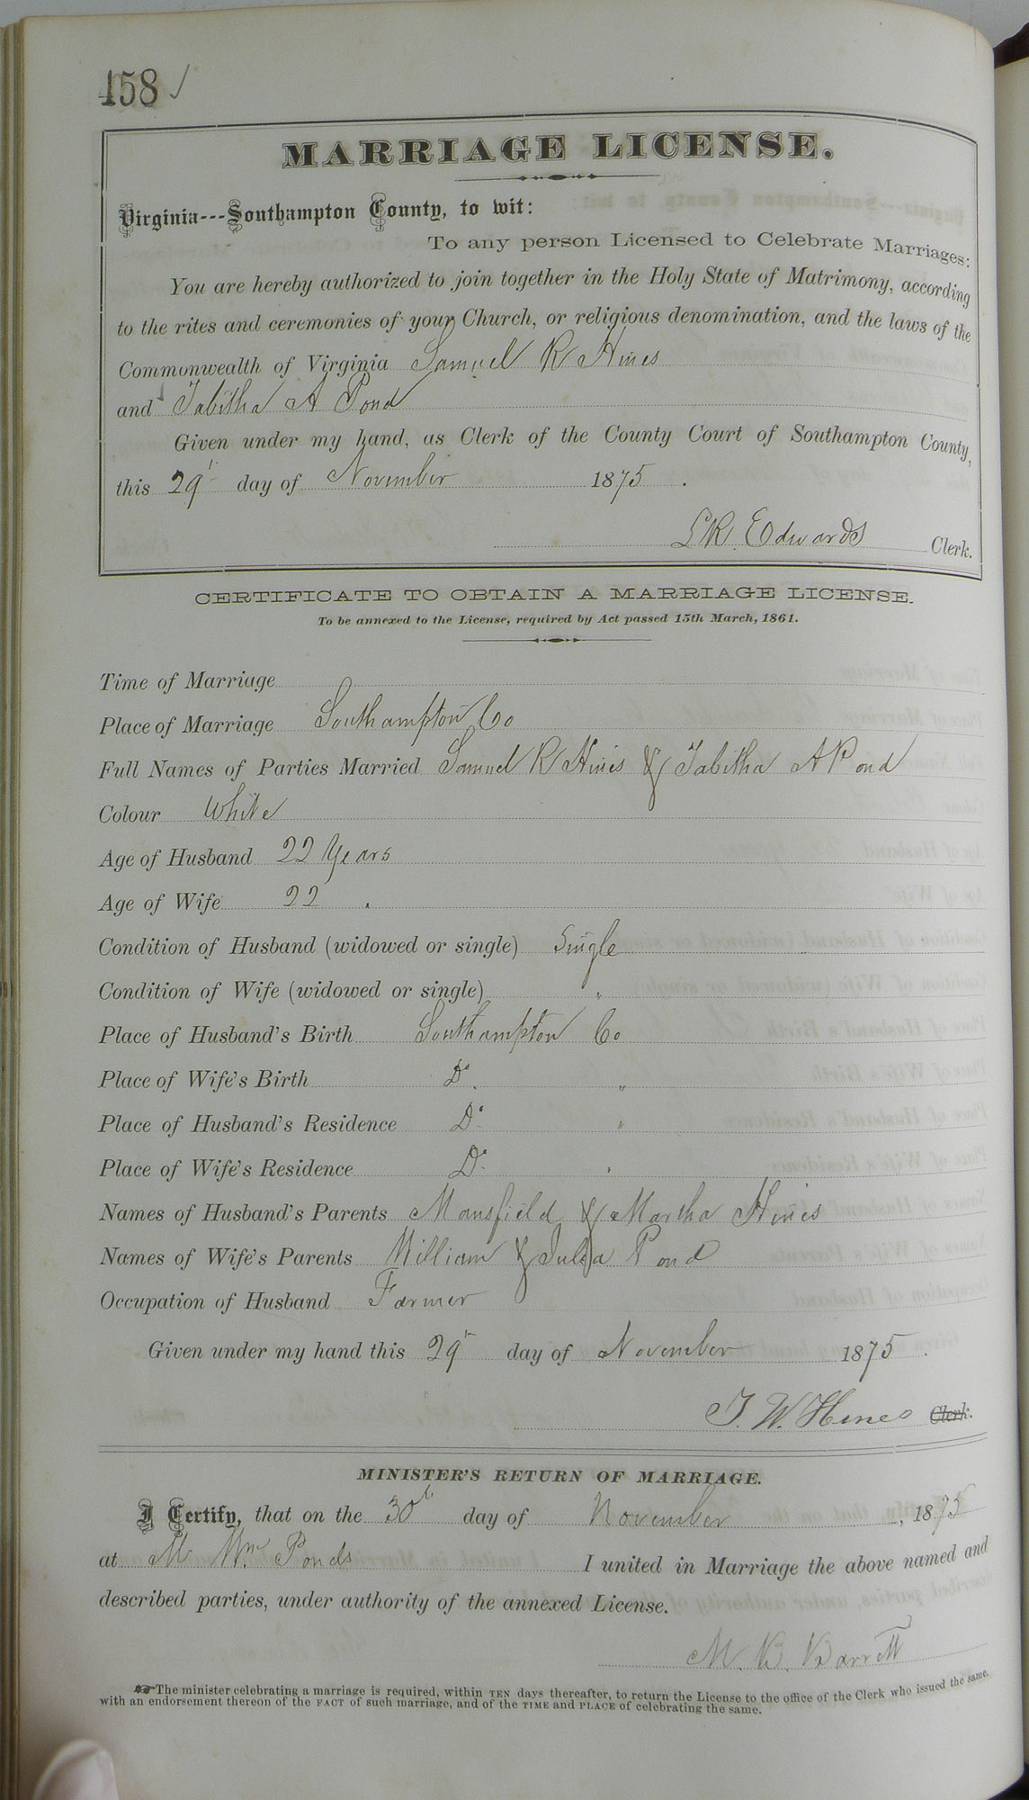 458 ✓
MARRIAGE LICENSE.
Virginia---Southampton County, to wit:
To any person Licensed to Celebrate Marriages:
You are hereby authorized to join together in the Holy State of Matrimony, according
to the rites and ceremonies of your Church, or religious denomination, and the laws of the
Commonwealth of Virginia Samuel R Hines
and Tabitha A Pond
Given under my hand, as Clerk of the County Court of Southampton County,
this 29 day of November 1875.
L R. Edwards Clerk.
CERTIFICATE TO OBTAIN A MARRIAGE LICENSE.
To be annexed to the License, required by Act passed 15th March, 1861.
Time of Marriage
Place of Marriage Southampton Co
Full Names of Parties Married Samuel R Hines & Tabitha A Pond
Colour White
Age of Husband 22 Years
Age of Wife 22 "
Condition of Husband (widowed or single) Single
Condition of Wife (widowed or single) "
Place of Husband's Birth Southampton Co
Place of Wife's Birth Do "
Place of Husband's Residence Do "
Place of Wife's Residence Do "
Names of Husband's Parents Mansfield & Martha Hines
Names of Wife's Parents William & Julia Pond
Occupation of Husband Farmer
Given under my hand this 29 day of November 1875.
J. W. Hines Clerk.
MINISTER'S RETURN OF MARRIAGE.
I Certify, that on the 30th day of November, 1875
at Mr Wm Ponds I united in Marriage the above named and
described parties, under authority of the annexed License.
M. B. Barrett
The minister celebrating a marriage is required, within TEN days thereafter, to return the License to the office of the Clerk who issued the same,
with an endorsement thereon of the FACT of such marriage, and of the TIME and PLACE of celebrating the same.